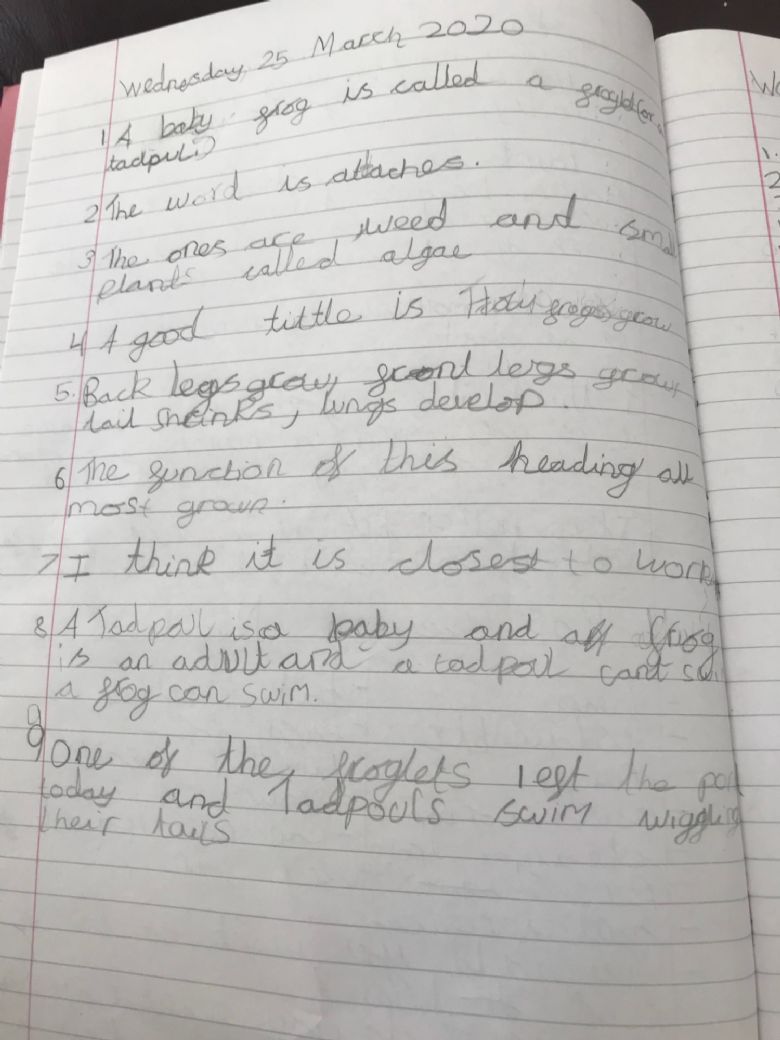 Wednesday 25 March 2020
1 A baby frog is called a
tadpul.)
2 The word is attaches.
3 The ones are weed and small
plants called algae
4 A good tittle is How frogs grow
5. Back legs grow, front legs grow,
tail shrinks, lungs develop.
6 The function of this heading all
most grown.
7 I think it is closest to work
8 A Tadpoul is a baby and a frog
is an adult and a tadpoul cant
a frog can swim.
9
9 One of the froglets left the
today and Tadpouls swim wiggling
their tails
Wo
1.
2